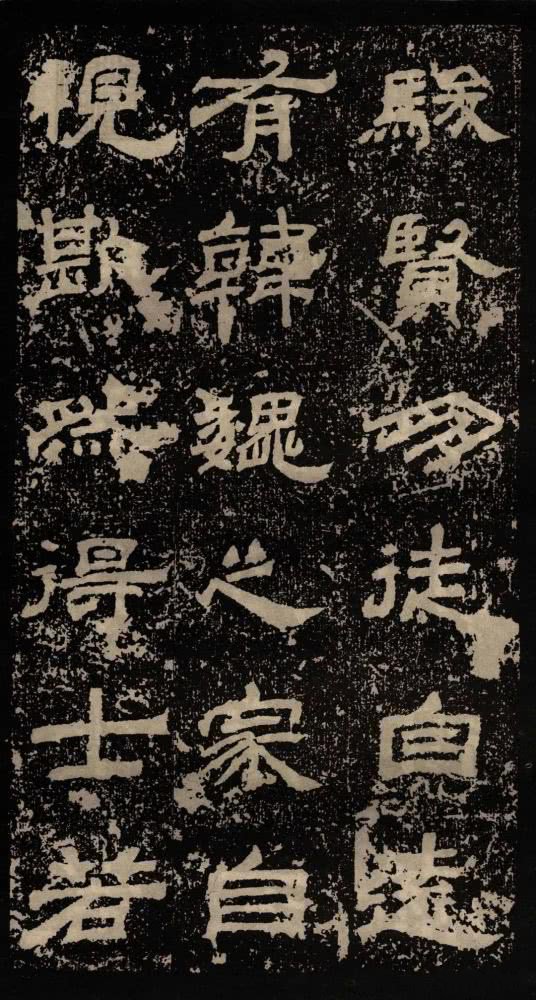 駿賢朋徒自遠
有韓魏之家自
視歁然得士若